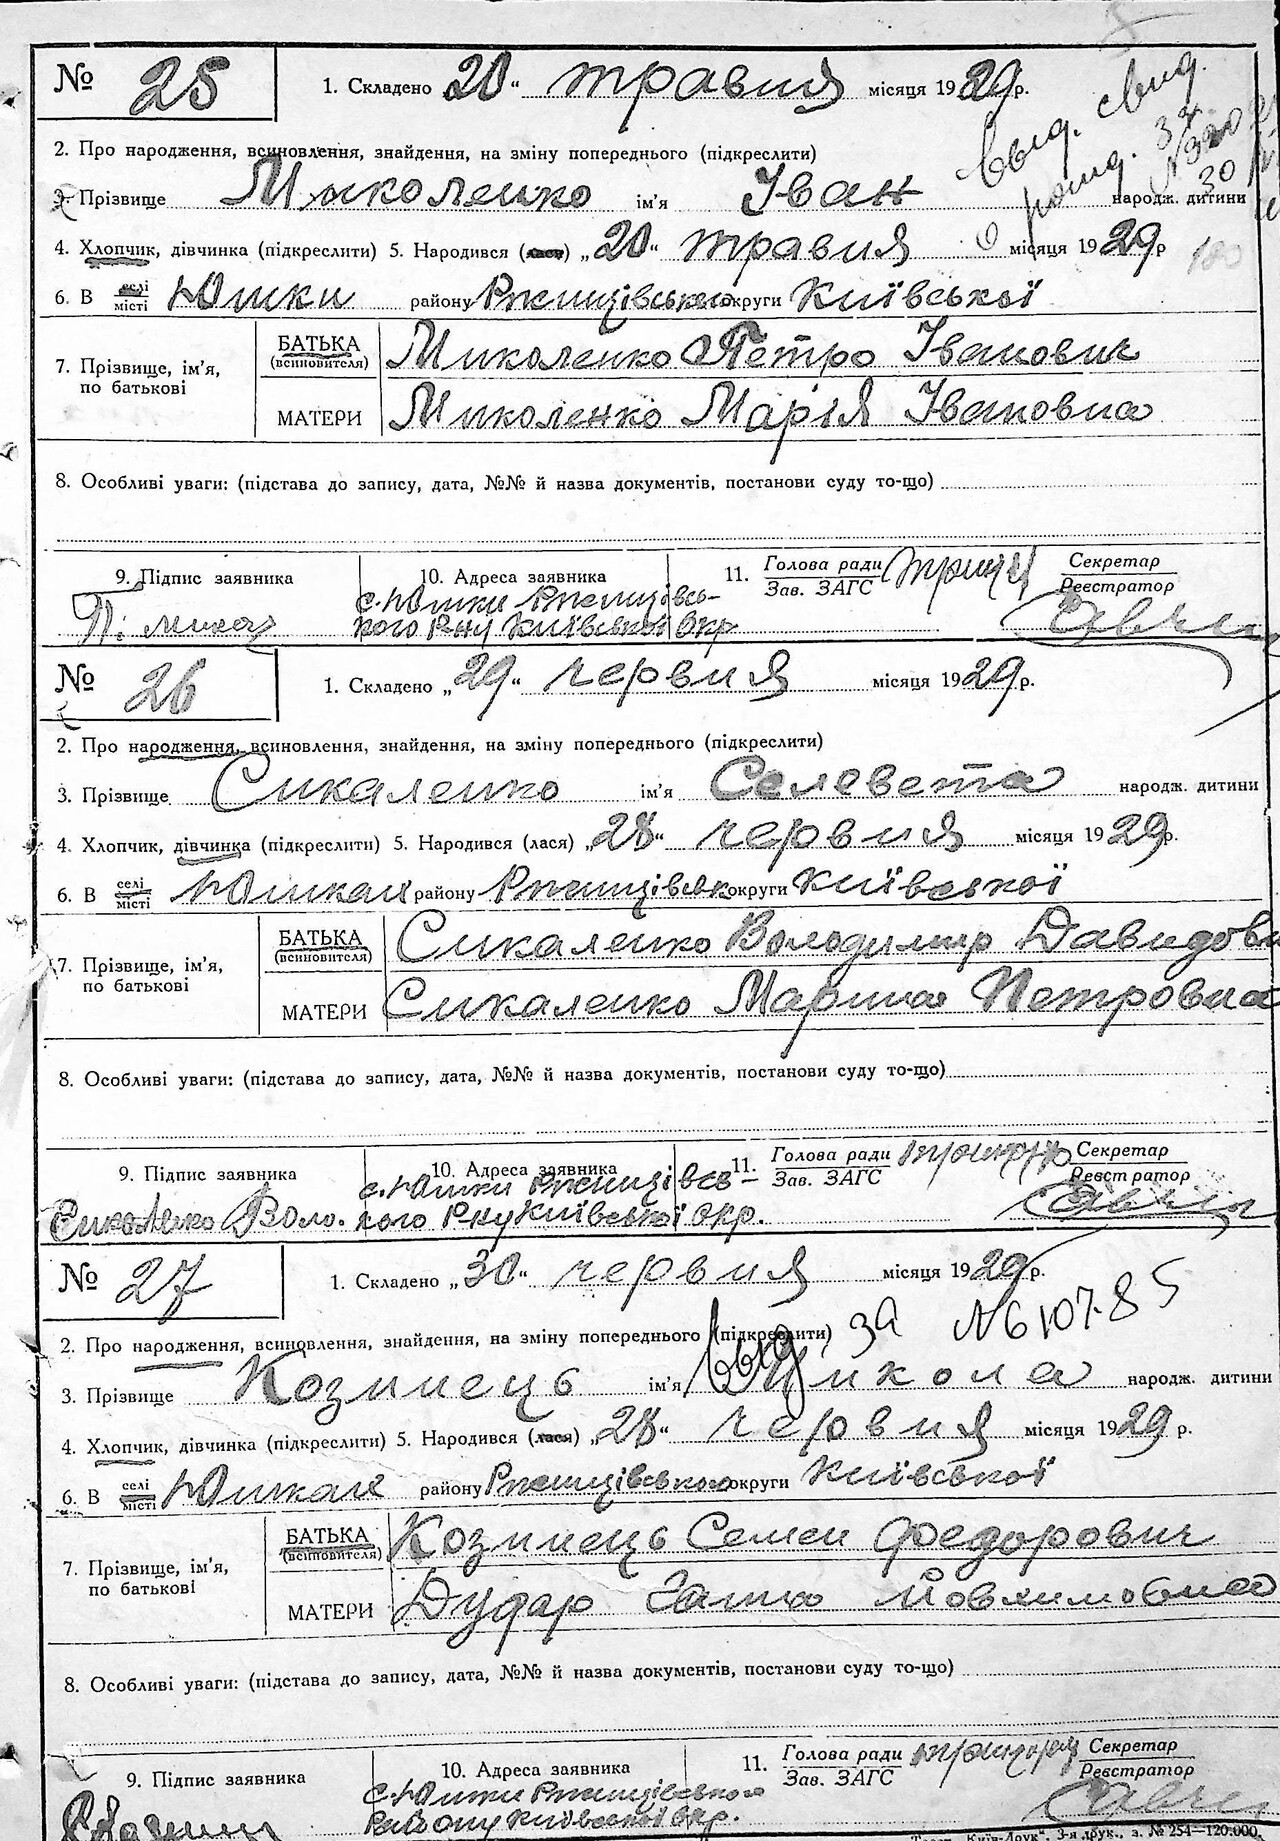 № 25 1. Складено 20 " травня місяця 1929 р.
Выд. свид.
рожд. за
2. Про народження, всиновлення, знайдення, на зміну попереднього (підкреслити)
3. Прізвище Миколенко ім'я Іван народж. дитини
4. Хлопчик, дівчинка (підкреслити) 5. Народився (лася) „ 20 " травня місяця 1929 р
6. В селі місті Юшки району Ржищівського округи Київської
7. Прізвище, ім'я, по батькові
БАТЬКА (всиновителя) Миколенко Петро Іванович
МАТЕРИ Миколенко Марія Івановна
8. Особливі уваги: (підстава до запису, дата, №№ й назва документів, постанови суду то-що)
9. Підпис заявника 10. Адреса заявника 11. Голова ради Зав. ЗАГС Секретар Реєстратор
с. Юшки Ржищівсь-
кого Р-ну Київської Окр
№ 26 1. Складено „ 29 " червня місяця 1929 р.
2. Про народження, всиновлення, знайдення, на зміну попереднього (підкреслити)
3. Прізвище Сикаленко ім'я Селевета народж. дитини
4. Хлопчик, дівчинка (підкреслити) 5. Народився (лася) „ 28 " червня місяця 1929 р.
6. В селі місті Юшках району Ржищівськ округи Київської
7. Прізвище, ім'я, по батькові
БАТЬКА (всиновителя) Сикаленко Володимир Давидови
МАТЕРИ Сикаленко Марина Петровна
8. Особливі уваги: (підстава до запису, дата, №№ й назва документів, постанови суду то-що)
9. Підпис заявника 10. Адреса заявника 11. Голова ради Зав. ЗАГС Секретар Реєстратор
с. Юшки Ржищівсь-
Сикаленко Воло. кого Р-ну Київської Окр.
№ 27 1. Складено „ 30 " червня місяця 1929 р.
2. Про народження, всиновлення, знайдення, на зміну попереднього (підкреслити)
выд. за N 6107-85
3. Прізвище Козинець ім'я Микола народж. дитини
4. Хлопчик, дівчинка (підкреслити) 5. Народився (лася) „ 28 " червня місяця 1929 р.
6. В селі місті Юшках району Ржищівського округи Київської
7. Прізвище, ім'я, по батькові
БАТЬКА (всиновителя) Козинець Семен Федорович
МАТЕРИ Дудар Ганна Йовхимовна
8. Особливі уваги: (підстава до запису, дата, №№ й назва документів, постанови суду то-що)
9. Підпис заявника 10. Адреса заявника 11. Голова ради Зав. ЗАГС Секретар Реєстратор
с. Юшки Ржищівського
Району Київської Окр.
Трест „Київ-Друк", 3-я друк., з. № 254—120.000.